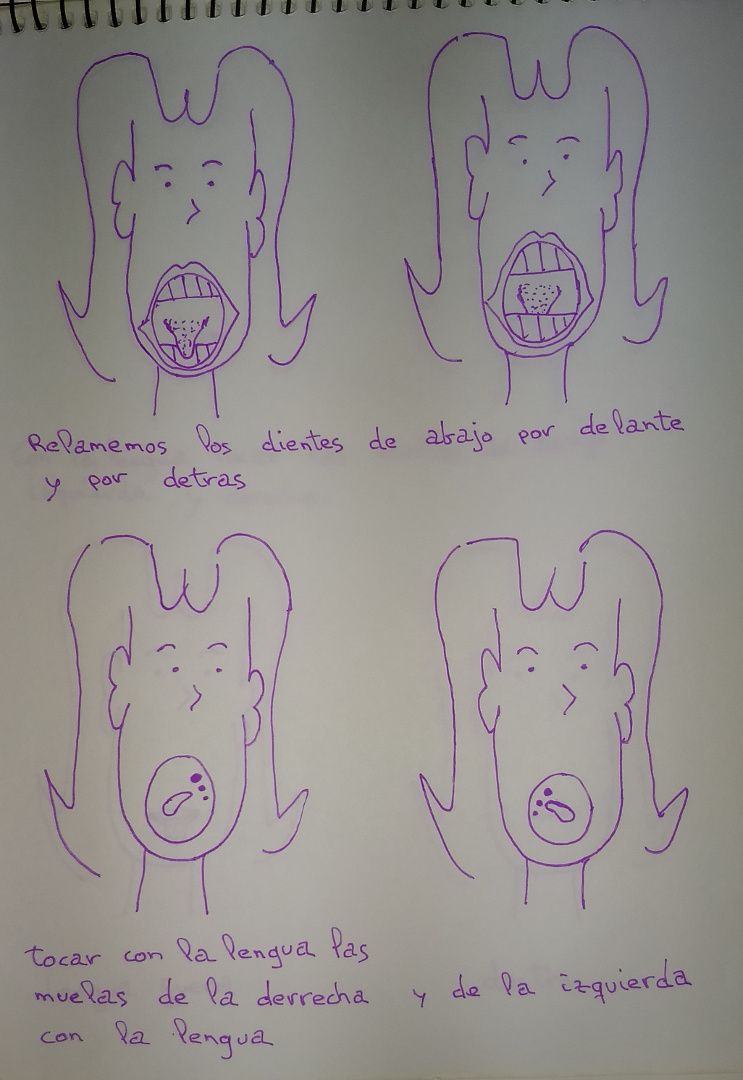 Relamemos los dientes de abajo por delante
y por detras
tocar con la lengua las
muelas de la derrecha y de la izquierda
con la lengua